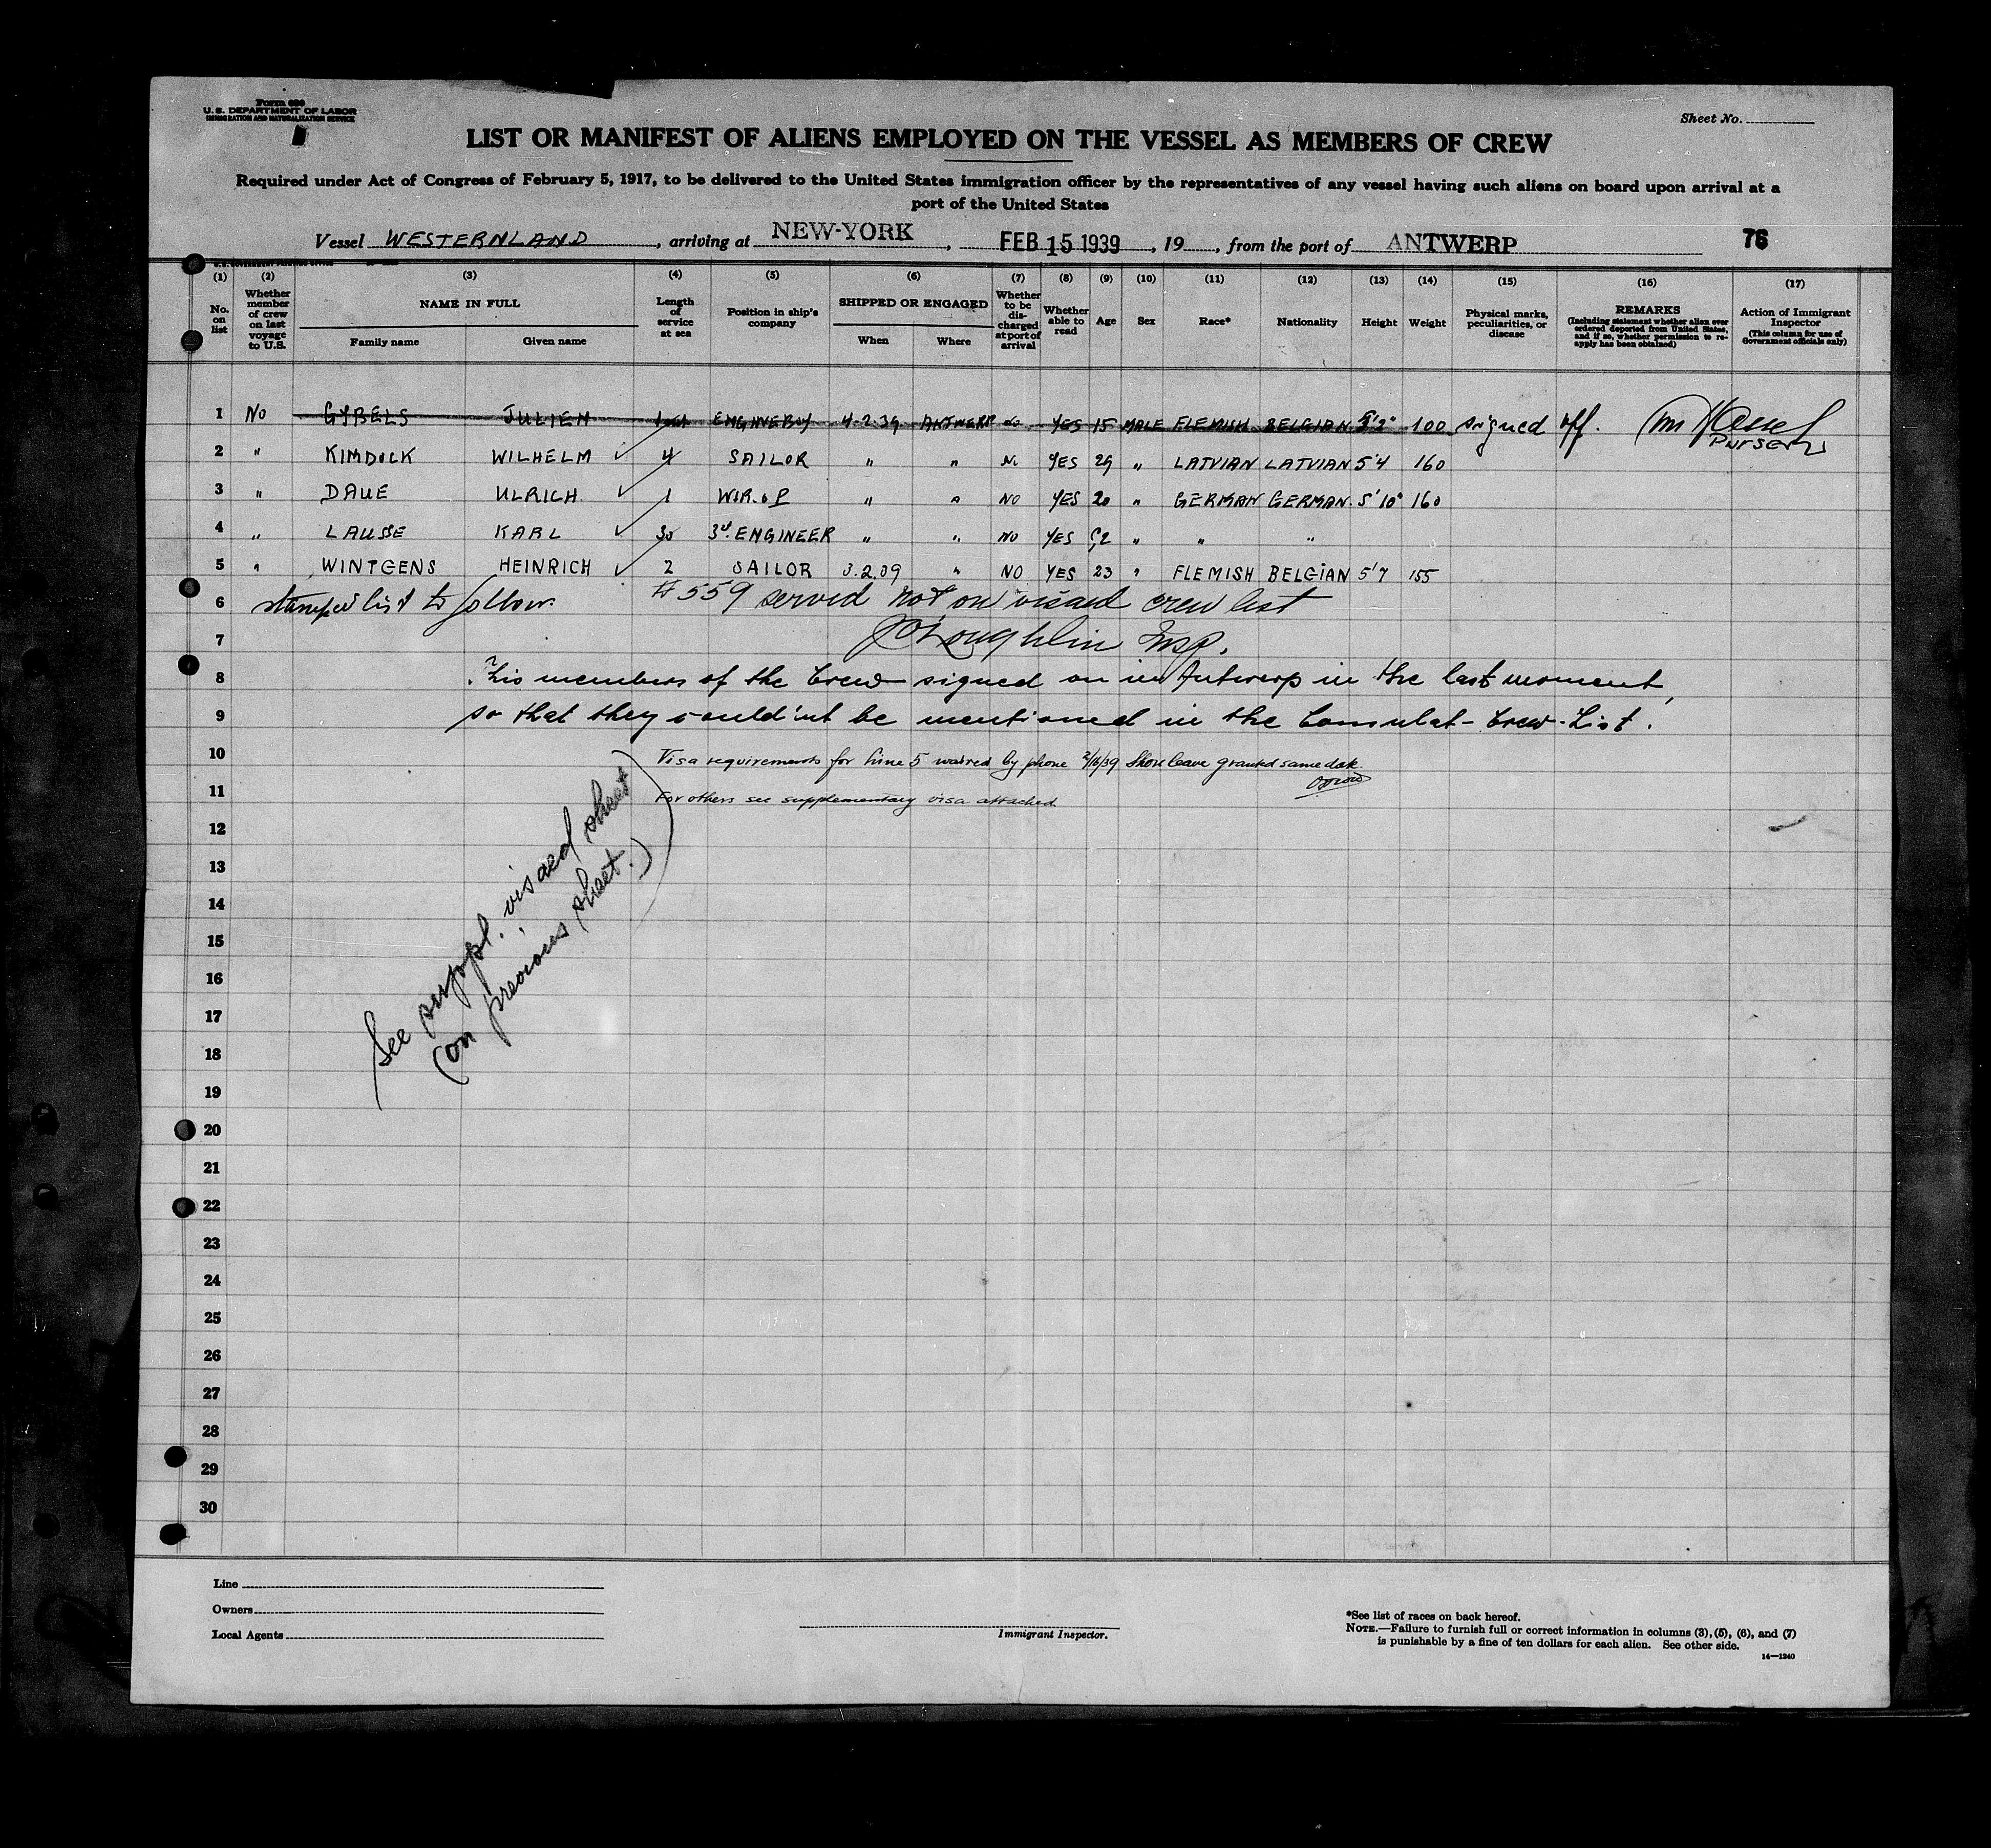 Form 680
U. S. DEPARTMENT OF LABOR
IMMIGRATION AND NATURALIZATION SERVICE
Sheet No.
LIST OR MANIFEST OF ALIENS EMPLOYED ON THE VESSEL AS MEMBERS OF CREW
Required under Act of Congress of February 5, 1917, to be delivered to the United States immigration officer by the representatives of any vessel having such aliens on board upon arrival at a
port of the United States
Vessel WESTERNLAND, arriving at NEW-YORK, FEB 15 1939, 19, from the port of ANTWERP 76
(1) No. on list
(2) Whether member of crew on last voyage to U.S.
(3) NAME IN FULL Family name Given name
(4) Length of service at sea
(5) Position in ship's company
(6) SHIPPED OR ENGAGED When Where
(7) Whether to be discharged at port of arrival
(8) Whether able to read
(9) Age
(10) Sex
(11) Race*
(12) Nationality
(13) Height
(14) Weight
(15) Physical marks, peculiarities, or disease
(16) REMARKS (Including statement whether alien ever ordered deported from United States, and if so, whether permission to reapply has been obtained)
(17) Action of Immigrant Inspector (This column for use of Government officials only)
1 No GYBELS JULIEN ENGINEBOY 4.2.39 ANTWERP YES 15 MALE FLEMISH BELGIAN 5'2" 100 signed off.
PURSER
2 " KIMDOCK WILHELM ✓ 4 SAILOR " " YES 29 " LATVIAN LATVIAN 5'4 160
3 " DAUE ULRICH ✓ 1 WIR.OP " " NO YES 20 " GERMAN GERMAN 5'10" 160
4 " LAUSSE KARL ✓ 30 3d. ENGINEER " " NO YES " " "
5 " WINTGENS HEINRICH ✓ 2 SAILOR 3.2.39 " NO YES 23 " FLEMISH BELGIAN 5'7 155
6 stamped list to follow. # 559 served not on visaed crew list
7 O'Loughlin Insp.
8 members of the Crew signed on in Antwerp in the last moment,
9 so that they could'nt be mentioned in the Consulat-Crew-List.
10 Visa requirements for Line 5 waived by phone 2/16/39 Shore leave granted same date.
11 For others see supplementary visa attached
12
13
See suppl. visaed sheet
(on previous sheet.)
14
15
16
17
18
19
20
21
22
23
24
25
26
27
28
29
30
Line
Owners
Local Agents
Immigrant Inspector.
*See list of races on back hereof.
NOTE.—Failure to furnish full or correct information in columns (3), (5), (6), and (7)
is punishable by a fine of ten dollars for each alien. See other side.
14—1240